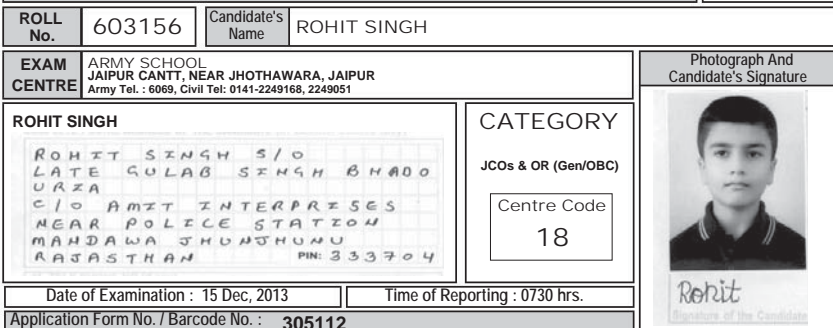 ROLL No. 603156 Candidate's Name ROHIT SINGH
EXAM CENTRE
ARMY SCHOOL
JAIPUR CANTT, NEAR JHOTHAWARA, JAIPUR
Army Tel. : 6069, Civil Tel: 0141-2249168, 2249051
Photograph And
Candidate's Signature
ROHIT SINGH
ROHIT SINGH S/O
LATE GULAB SINGH BHADO
URIA
C/O AMIT INTERPRISES
NEAR POLICE STATION
MANDAWA JHUNJHUNU
RAJASTHAN PIN: 333704
CATEGORY
JCOs & OR (Gen/OBC)
Centre Code
18
Rohit
Signature of the Candidate
Date of Examination : 15 Dec, 2013 Time of Reporting : 0730 hrs.
Application Form No. / Barcode No. : 305112